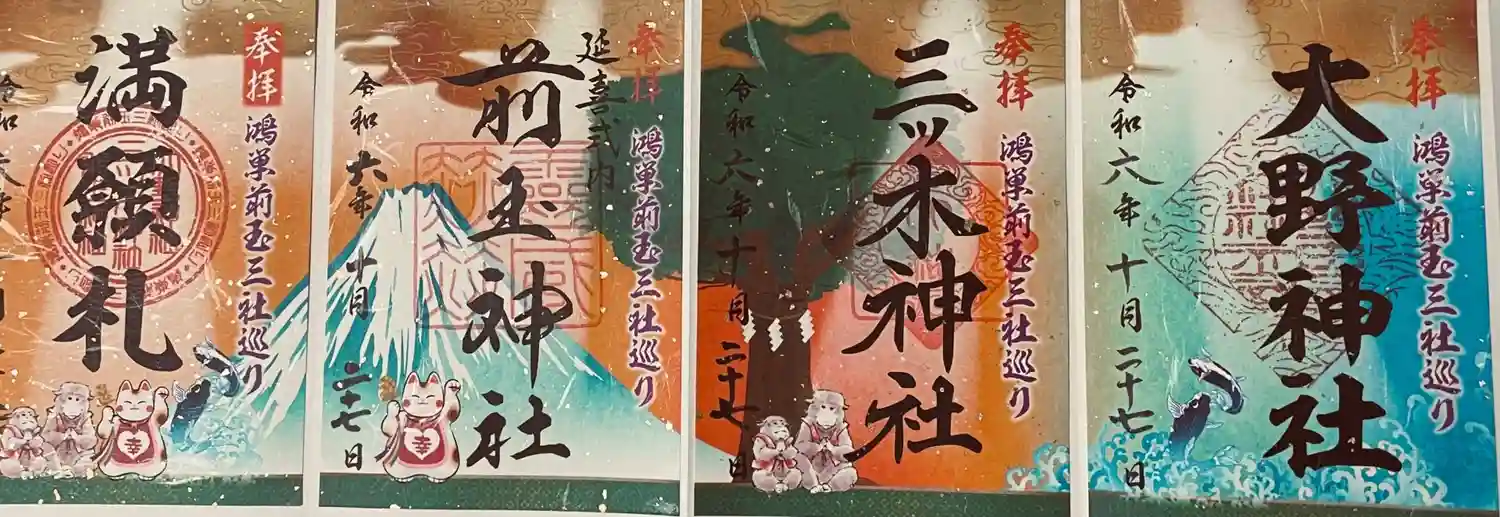 奉拝
鴻巣前玉三社巡り
大野神社
令和六年十月二十七日
奉拝
鴻巣前玉三社巡り
三ツ木神社
令和六年十月二十七日
奉拝
鴻巣前玉三社巡り
延喜式内
前玉神社
令和六年十月二十七日
幸
奉拝
鴻巣前玉三社巡り
満願札
令和
幸